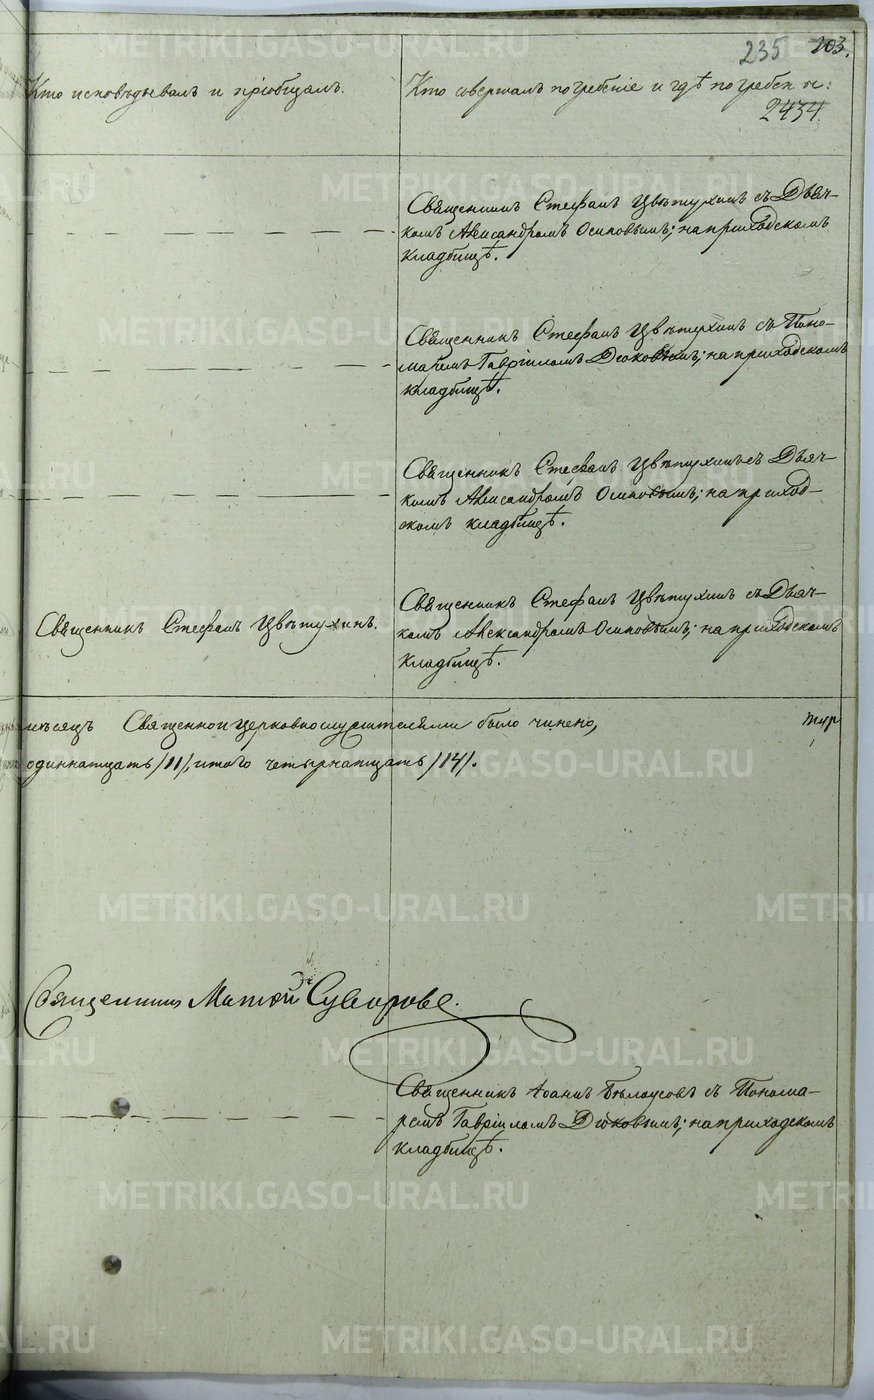 235 203.
Кто исповѣдывалъ и пріобщалъ.
Кто совершалъ погребеніе и гдѣ погребены:
2434.
Священникъ Стефанъ Цвѣтухинъ съ Дьяч-
комъ Александромъ Осиповымъ; на приходскомъ
кладбищѣ.
Священникъ Стефанъ Цвѣтухинъ съ Поно-
маремъ Гавріиломъ Дюковымъ; на приходскомъ
кладбищѣ.
Священникъ Стефанъ Цвѣтухинъ съ Дьяч-
комъ Александромъ Осиповымъ; на приход-
скомъ кладбищѣ.
Священникъ Стефанъ Цвѣтухинъ.
Священникъ Стефанъ Цвѣтухинъ съ Дьяч-
комъ Александромъ Осиповымъ; на приходскомъ
кладбищѣ.
мѣсяцъ Священноицерковнослужителями было чинено,
одиннатцать /11/, итого четырнатцать /14/.
Священникъ Матѳій Суворовъ.
Священникъ Іоаннъ Бѣлоусовъ съ Понома-
ремъ Гавріиломъ Дюковымъ; на приходскомъ
кладбищѣ.
METRIKI.GASO-URAL.RU